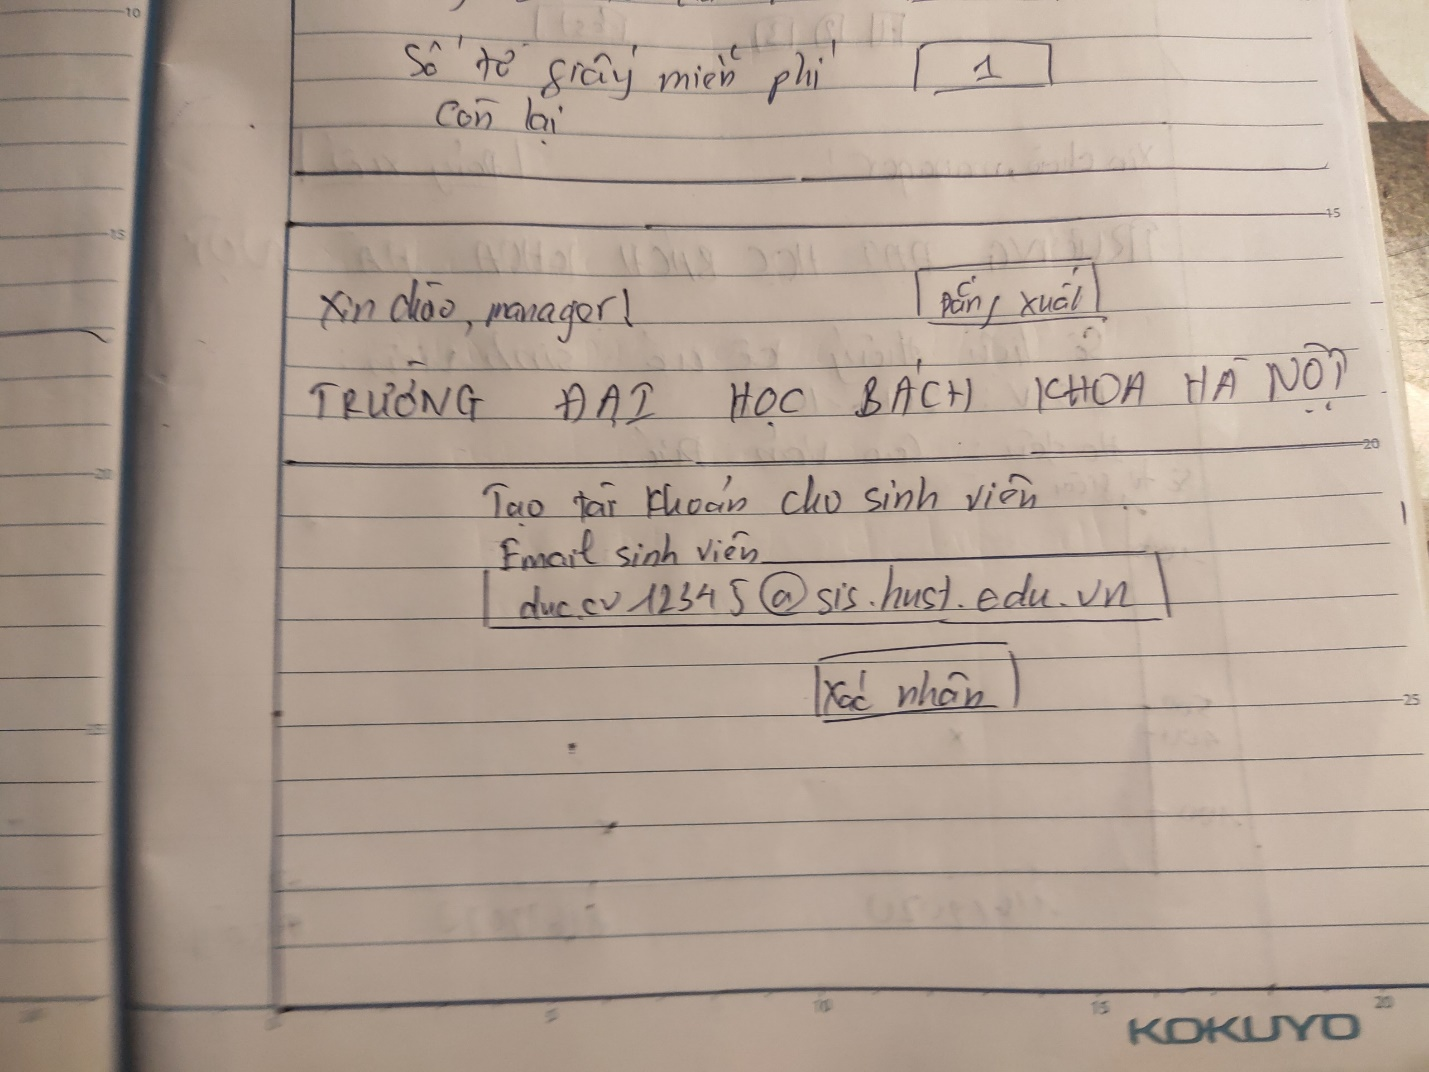 10
Số tờ giấy miễn phí 1
còn lại
15
15
Xin chào, manager! Đăng xuất
TRƯỜNG ĐẠI HỌC BÁCH KHOA HÀ NỘI
20
20
Tạo tài khoản cho sinh viên
Email sinh viên
duc.cv12345@sis.hust.edu.vn
Xác nhận
25
25
5 10 15 20
KOKUYO